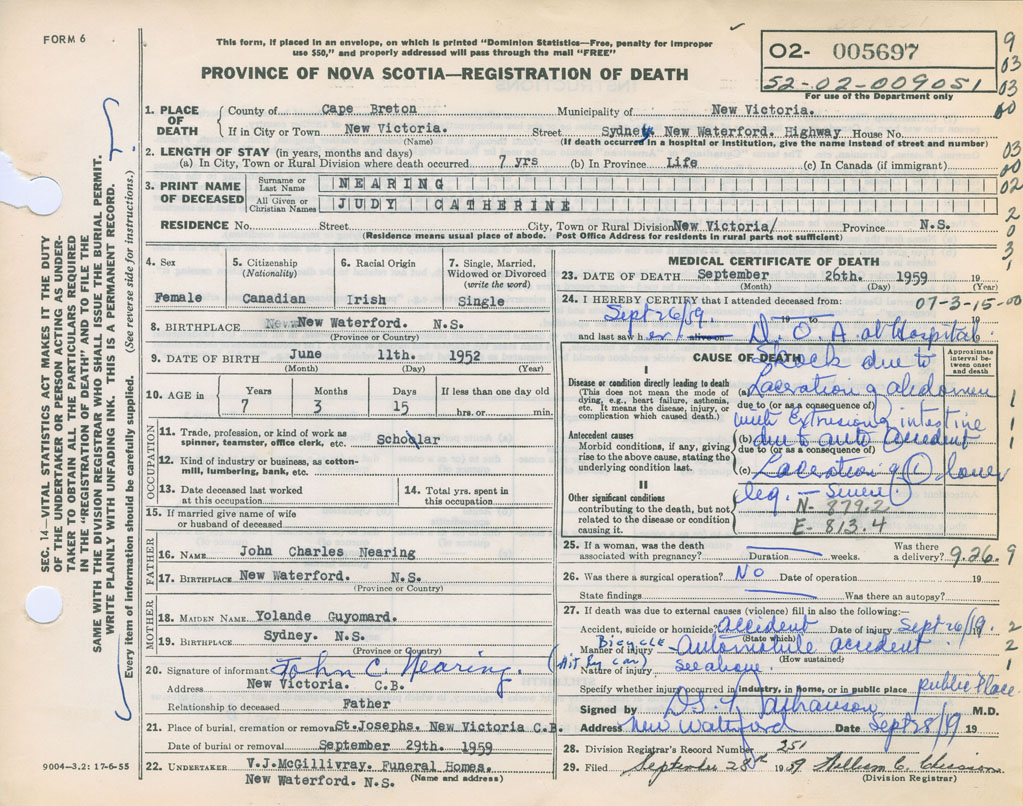 FORM 6
This form, if placed in an envelope, on which is printed "Dominion Statistics—Free, penalty for improper
use $50," and properly addressed will pass through the mail "FREE"
PROVINCE OF NOVA SCOTIA—REGISTRATION OF DEATH
02- 005697
52-02-009051
For use of the Department only
9
03
03
00
03
00
02
2
0
3
1
SEC. 14—VITAL STATISTICS ACT MAKES IT THE DUTY
OF THE UNDERTAKER OR PERSON ACTING AS UNDER-
TAKER TO OBTAIN ALL THE PARTICULARS REQUIRED
IN THE "REGISTRATION OF DEATH" AND TO FILE THE
SAME WITH THE DIVISION REGISTRAR WHO SHALL ISSUE THE BURIAL PERMIT.
WRITE PLAINLY WITH UNFADING INK. THIS IS A PERMANENT RECORD.
Every item of information should be carefully supplied. (See reverse side for instructions.)
1. PLACE OF DEATH County of Cape Breton Municipality of New Victoria.
If in City or Town New Victoria. Street Sydney. New Waterford. Highway House No.
(Name) (If death occurred in a hospital or institution, give the name instead of street and number)
2. LENGTH OF STAY (in years, months and days)
(a) In City, Town or Rural Division where death occurred. 7 yrs (b) In Province Life (c) In Canada (if immigrant)
3. PRINT NAME OF DECEASED Surname or Last Name NEARING
All Given or Christian Names JUDY CATHERINE
RESIDENCE No. Street City, Town or Rural Division New Victoria/ Province N.S.
(Residence means usual place of abode. Post Office Address for residents in rural parts not sufficient)
4. Sex 5. Citizenship (Nationality) 6. Racial Origin 7. Single, Married, Widowed or Divorced (write the word)
Female Canadian Irish Single
8. BIRTHPLACE New Waterford. N.S.
(Province or Country)
9. DATE OF BIRTH June 11th. 1952
(Month) (Day) (Year)
10. AGE in Years Months Days If less than one day old
7 3 15 hrs. or min.
OCCUPATION
11. Trade, profession, or kind of work as
spinner, teamster, office clerk, etc. Scholar
12. Kind of industry or business, as cotton-
mill, lumbering, bank, etc.
13. Date deceased last worked
at this occupation
14. Total yrs. spent in
this occupation
15. If married give name of wife
or husband of deceased
FATHER
16. NAME John Charles Nearing
17. BIRTHPLACE New Waterford. N.S.
(Province or Country)
MOTHER
18. MAIDEN NAME Yolande Guyomard.
19. BIRTHPLACE Sydney. N.S.
(Province or Country)
20. Signature of informant John C. Nearing.
Address New Victoria. C.B.
Relationship to deceased Father
21. Place of burial, cremation or removal St.Josephs. New Victoria C.B.
Date of burial or removal September 29th. 1959
22. UNDERTAKER V.J.McGillivray. Funeral Homes.
New Waterford. N.S. (Name and address)
9004—3.2: 17-6-55
MEDICAL CERTIFICATE OF DEATH
23. DATE OF DEATH September 26th. 1959 19
(Month) (Day) (Year)
24. I HEREBY CERTIFY that I attended deceased from: 07-3-15-00
Sept 26/59. 19 to 19
and last saw her alive on D. O. A. at Hospital.
CAUSE OF DEATH
Approximate interval between onset and death
I
Disease or condition directly leading to death
(This does not mean the mode of
dying, e.g., heart failure, asthenia,
etc. It means the disease, injury, or
complication which caused death.)
Shock due to
Laceration of abdomen
due to (or as a consequence of)
with Extrusion of intestine
Antecedent causes
Morbid conditions, if any, giving
rise to the above cause, stating the
underlying condition last.
(b) due to auto accident
due to (or as a consequence of)
(c) Laceration of lower
leg. — Severe
II
Other significant conditions
contributing to the death, but not
related to the disease or condition
causing it.
N- 879.2
E- 813.4
1
1
1
25. If a woman, was the death
associated with pregnancy? Duration weeks. Was there a delivery? 9.26.9
26. Was there a surgical operation? No Date of operation 19
State findings Was there an autopsy?
27. If death was due to external causes (violence) fill in also the following:—
Accident, suicide or homicide? accident Date of injury Sept 26/59. 2
(State which)
Bicycle
Manner of injury Automobile accident 2
(How sustained)
(Hit By car) Nature of injury see above. 1
Specify whether injury occurred in industry, in home, or in public place public Place
Signed by M.D.
Address New Waterford Date Sept 28/59 19
28. Division Registrar's Record Number 251
29. Filed September 28th 1959 William C.
(Division Registrar)